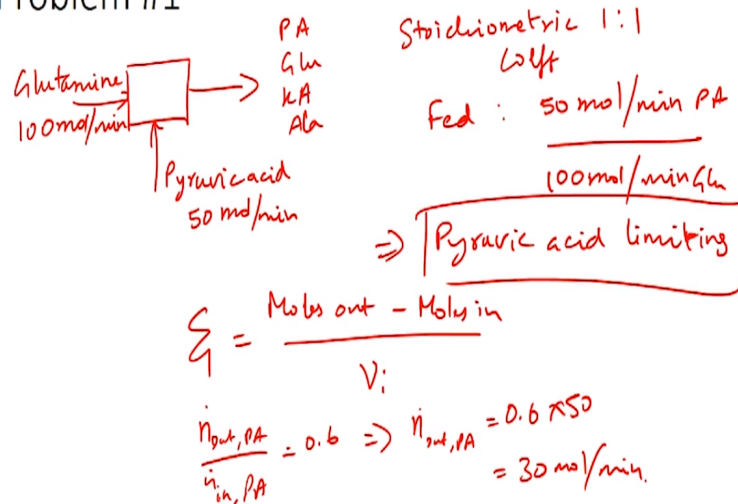 Problem #1
Glutamine
100mol/min
Pyruvic acid
50 mol/min
PA
Glu
KA
Ala
Stoichiometric 1:1
Coeff
Fed : 50 mol/min PA
100mol/min Glu
⇒ Pyruvic acid limiting
ξ = Moles out - Moles in / νi
ṅout,PA / ṅin,PA = 0.6 ⇒ ṅout,PA = 0.6 x 50
= 30 mol/min.